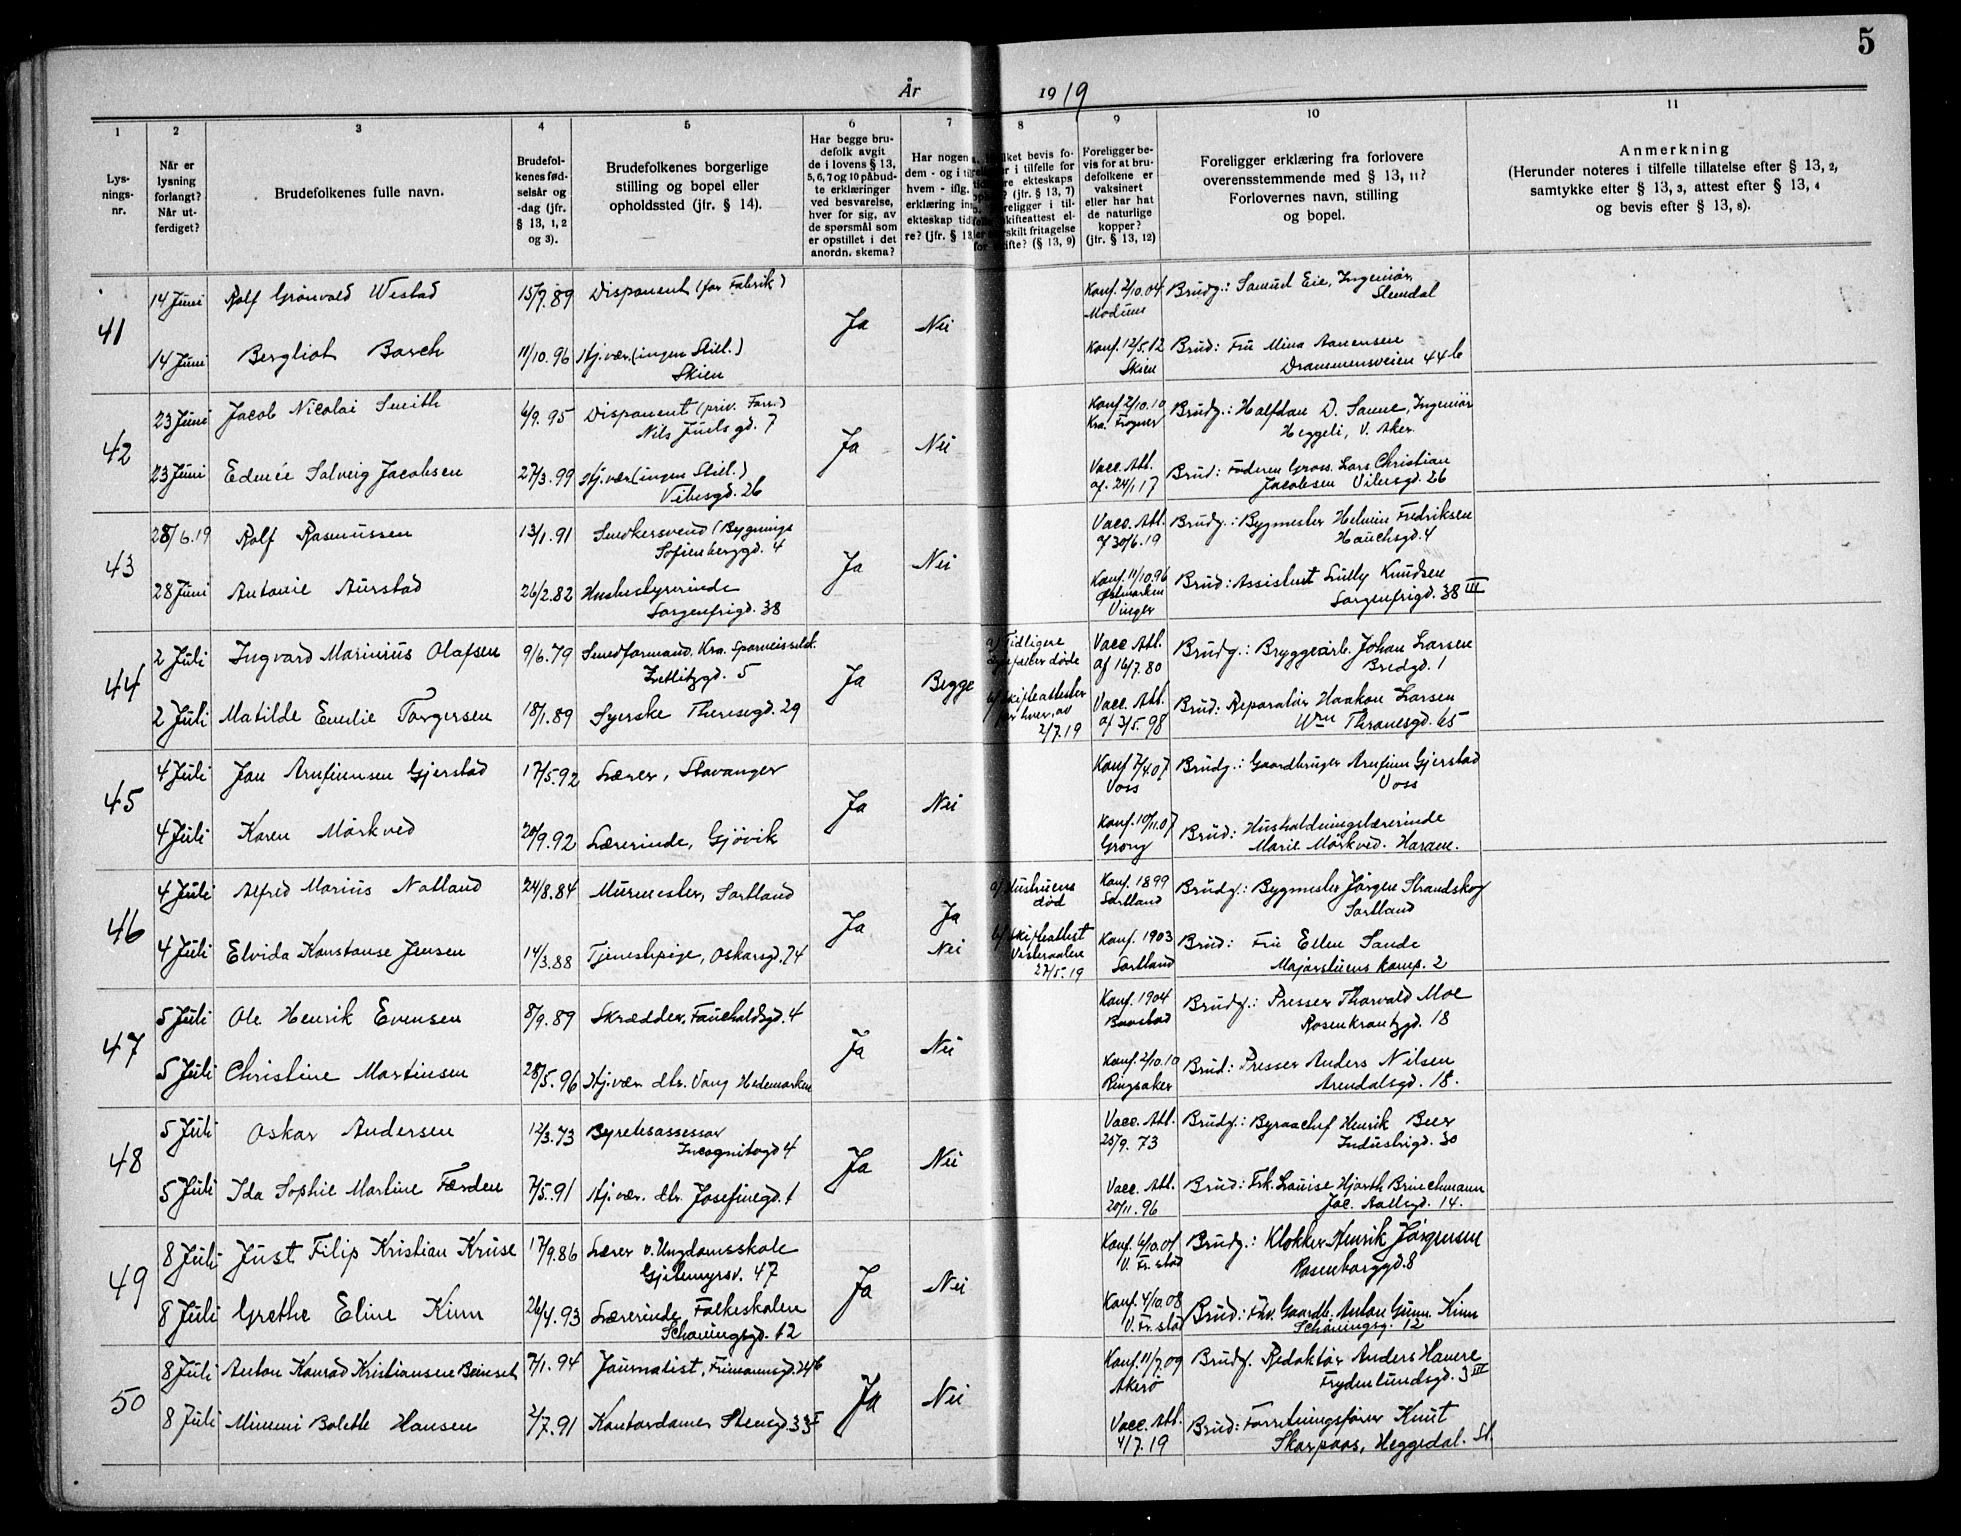 5
År 1919
1 2 3 4 5 6 7 8 9 10 11
Lysningsnr.
Når er lysning forlangt? Når utferdiget?
Brudefolkenes fulle navn.
Brudefolkenes fødselsår og -dag (jfr. § 13, 1, 2 og 3).
Brudefolkenes borgerlige stilling og bopel eller opholdssted (jfr. § 14).
Har begge brudefolk avgit de i lovens § 13, 5, 6, 7 og 10 påbudte erklæringer ved besvarelse, hver for sig, av de spørsmål som er opstillet i det anordn. skema?
Foreligger bevis for at brudefolkene er vaksinert eller har hat de naturlige kopper? (jfr. § 13, 12)
Foreligger erklæring fra forlovere overensstemmende med § 13, 11? Forlovernes navn, stilling og bopel.
Anmerkning
(Herunder noteres i tilfelle tillatelse efter § 13, 2, samtykke efter § 13, 3, attest efter § 13, 4 og bevis efter § 13, 8).
41
14 Juni Rolf Grönvold Westad 15/7.89 Disponent (for Fabrik) Ja Nei Konf. 2/10.04 Modum Brudg.: Samuel Eie, Ingeniør, Slemdal
14 Juni Bergliot Borch 11/10.96 Hj.vær. (ingen Still.) Skien Konf. 12/5.12 Skien Brud: Fru Mina Aanensen Drammensveien 44 b
42
23 Juni Jacob Nicolai Smith 6/9.95 Disponent (priv. Forr.) Nils Juels gd. 7 Ja Nei Konf 2/10.10 Kra. Frogner Brudg.: Halfdan D. Sanne, Ingeniør Heggeli, V. Aker.
23 Juni Edmée Solveig Jacobsen 27/3.99 Hj.vær. (ingen Still.) Vibesgd. 26 Vacc. Att. af. 24/1 17 Brud: Faderen Gross. Lars Christian Jacobsen Vibesgd. 26
43
28/6.19 Rolf Rasmussen 13/1.91 Snedkersvend (Bygnings Sofienberggd. 4 Ja Nei Vacc. Att. af 30/6.19 Brudg.: Bygmester Helmin Fredriksen Hauchsgd. 4
28 Juni Antonie Aurstad 26/2.82 Husbestyrerinde Sorgenfrigd. 38 Konf. 11/10.96 Østmarken Vinger Brud: Assistent Lully Knudsen Sorgenfrigd. 38 III
44
2 Juli Ingvard Marinius Olafsen 9/6.79 Smedformand. Kra. Sporveisselsk. Zetlitzgd. 5 Ja Begge a) Tidligere ægtefæller døde Vacc Att. af 16/7.80 Brudg.: Bryggeiarb. Johan Larsen Bredgd. 1
2 Juli Matilde Emilie Torgersen 18/1.89 Syerske Theresegd. 29 b) skifteattester for hver, av 2/7.19 Vacc. Att. af 3/5.98 Brud: Reparatør Haakon Larsen Wm Thranesgd. 65
45
4 Juli Jon Arnfinnsen Gjerstad 17/5.92 Lærer, Stavanger Ja Nei Konf 7/4.07 Voss Brudg.: Gaardbruger Arnfinn Gjerstad Voss
4 Juli Karen Mörkved 20/9.92 Lærerinde, Gjövik Konf. 10/11.07 Grong Brud: Husholdningslærerinde Marie Mörkved. Haram.
46
4 Juli Alfred Marius Natland 24/8.84 Murmester, Sortland Ja Ja a) Hustruens død Konf. 1899 Sortland Brudg.: Bygmester Jörgen Strandskog Sortland
4 Juli Elvida Konstanse Jensen 14/3.88 Tjenestepige, Oskarsgd. 24 Nei b) skifteattest Vesteraalen 27/5.19 Konf. 1903 Sortland Brud: Fru Ellen Sande Majorstuens komp. 2
47
5 Juli Ole Henrik Evensen 8/9.89 Skrædder, Fauchaldsgd. 4 Ja Nei Konf. 1904 Brudg.: Presser Thorvald Moe Rosenkrantzgd. 18
5 Juli Christine Martinsen 28/5.96 Hj.vær. dtr. Vang Hedemarken Konf. 2/10.10 Ringsaker Brud: Presser Anders Nilsen Arendalsgd. 18.
48
5 Juli Oskar Andersen 12/3.73 Byretsassessor Incognitogd 4 Ja Nei Vacc. Att. 25/9.73 Brudg.: Byraachef Henrik Beer Industrigd. 30
5 Juli Ida Sophie Martine Færden 7/5.91 Hj.vær. dtr. Josefinegd. 1 Vacc. Att. 20/11.96 Brud: Frk. Louise Hjorth Brinchmann Jac. Aallsgd. 14.
49
8 Juli Just Filip Kristian Kruse 17/9.86 Lærer v. Ungdomsskole Gjetemyrsv. 47 Ja Nei Konf. 6/10.01 V. Fr.stad Brudg.: Klokker Henrik Jörgensen Rosenborggd. 8
8 Juli Grethe Eline Kinn 26/4.93 Lærerinde Folkeskolen Schøningsgd. 12 Konf. 4/10.08 V. Fr.stad Brud: Fhv. Gaardb. Anton Gunn. Kinn Schøningsg. 12
50
8 Juli Anton Konrad Kristiansen Beinset 7/1.94 Journalist, Frimannsgd. 24 b Ja Nei Konf. 11/7.09 Akerö Brudg. Redaktør Anders Havre Frydenlundsgd. 3 III
8 Juli Mimmi Bolette Hansen 2/7.91 Kontordame, Stensgd. 33 I Vacc. Att. 4/7.19 Brud: Forretningsfører Knut Skarpaas, Heggedal. St.